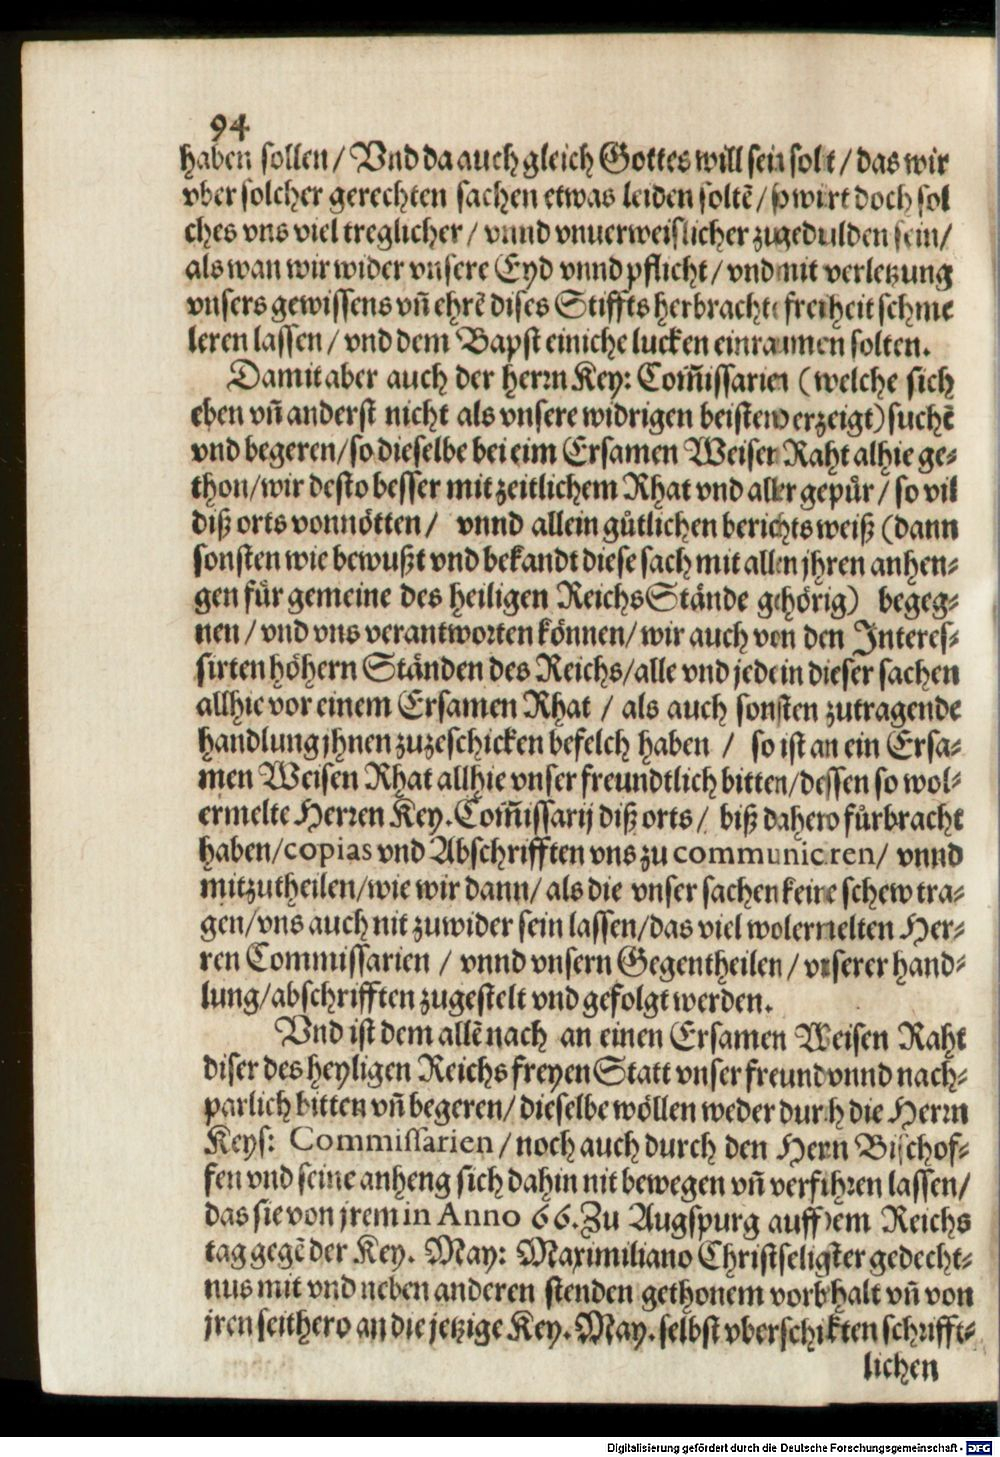 94
haben sollen / Vnd da auch gleich Gottes will sein solt / das wir
vber solcher gerechten sachen etwas leiden soltẽ / so wirt doch sol
ches vns viel treglicher / vnnd vnuerweislicher zugedulden sein /
als wan wir wider vnsere Eyd vnnd pflicht / vnd mit verletzung
vnsers gewissens vñ ehrẽ dises Stiffts herbrachte freiheit schme
leren lassen / vnd dem Bapst einiche lucken einraumen solten.
Damit aber auch der herrn Key: Com̃issarien (welche sich
eben vñ anderst nicht als vnsere widrigen beistend erzeigt) suchẽ
vnd begeren / so dieselbe bei eim Ersamen Weisen Raht alhie ge-
thon / wir desto besser mit zeitlichem Rhat vnd aller gepuͤr / so vil
diß orts vonnoͤtten / vnnd allein guͤtlichen berichts weiß (dann
sonsten wie bewußt vnd bekandt diese sach mit allen jhren anhen-
gen fuͤr gemeine des heiligen Reichs Staͤnde gehoͤrig) begeg-
nen / vnd vns verantworten koͤnnen / wir auch von den Interes-
sirten hoͤhern Staͤnden des Reichs / alle vnd jede in dieser sachen
allhie vor einem Ersamen Rhat / als auch sonsten zutragende
handlung jhnen zuzeschicken befelch haben / so ist an ein Ersa-
men Weisen Rhat allhie vnser freundtlich bitten / dessen so wol-
ermelte Herren Key. Com̃issarij diß orts / biß dahero fuͤrbracht
haben / copias vnd Abschrifften vns zu communiceren / vnnd
mitzutheilen / wie wir dann / als die vnser sachen keine schew tra-
gen / vns auch nit zuwider sein lassen / das viel wolermelten Her-
ren Commissarien / vnnd vnsern Gegentheilen / vnserer hand-
lung / abschrifften zugestelt vnd gefolgt werden.
Vnd ist dem allẽ nach an einen Ersamen Weisen Raht
diser des heyligen Reichs freyen Statt vnser freund vnnd nach-
parlich bitten vñ begeren / dieselbe woͤllen weder durch die Herrn
Keys: Commissarien / noch auch durch den Hern Bischof-
fen vnd seine anheng sich dahin nit bewegen vñ verfihren lassen /
das sie von jrem in Anno 66. Zu Augspurg auff dem Reichs
tag gegẽ der Key. May: Maximiliano Christseligster gedecht-
nus mit vnd neben anderen stenden gethonem vorbhalt vñ von
jren seithero an die jetzige Key. May. selbst vberschikten schrifft-
lichen
Digitalisierung gefördert durch die Deutsche Forschungsgemeinschaft - DFG